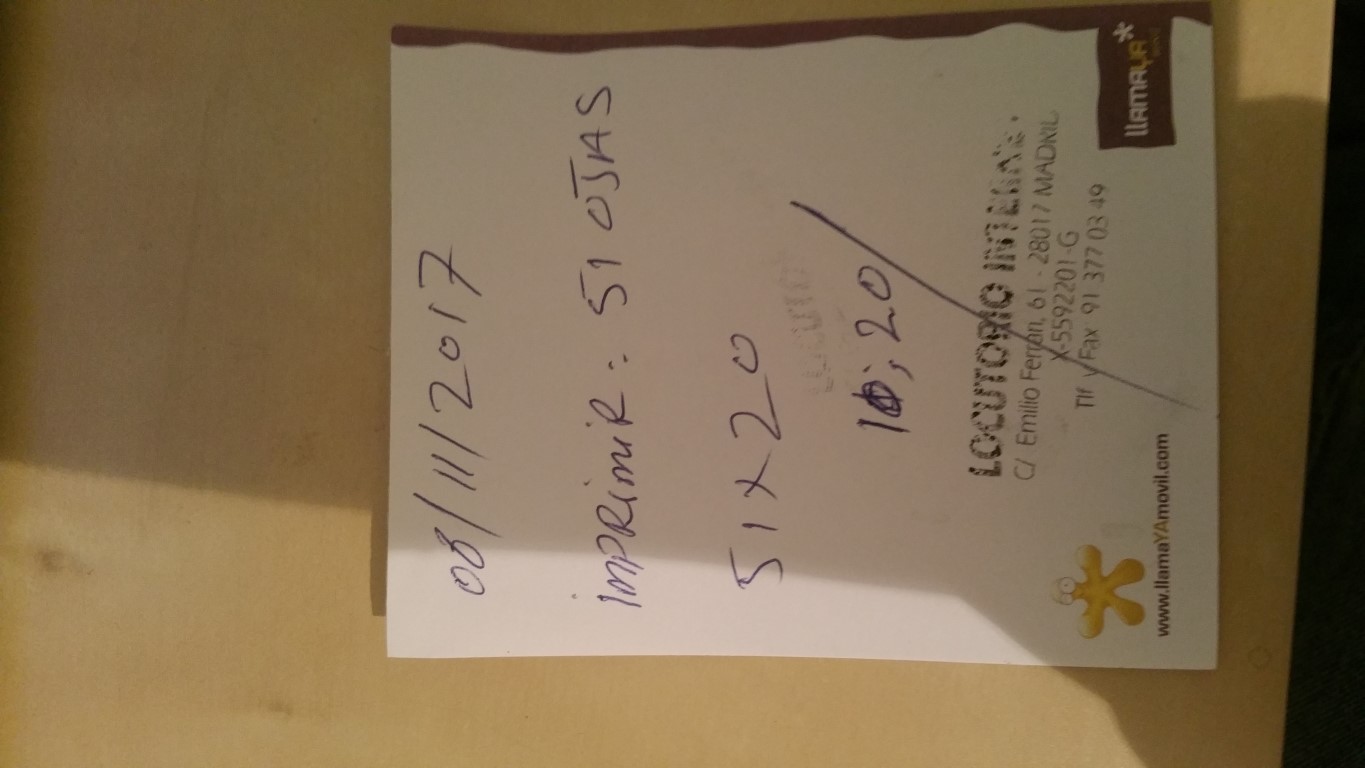 08/11/2017
IMPRIMIR: 51 OJAS
51 x 20
10;20
LOCUTO
LOCUTORIO INTERNE
C/ Emilio Ferrari, 61 - 28017 MADRID
X-5592201-G
Tlf y Fax 91 377 03 49
llamaYA*
movil
www.llamaYAmovil.com